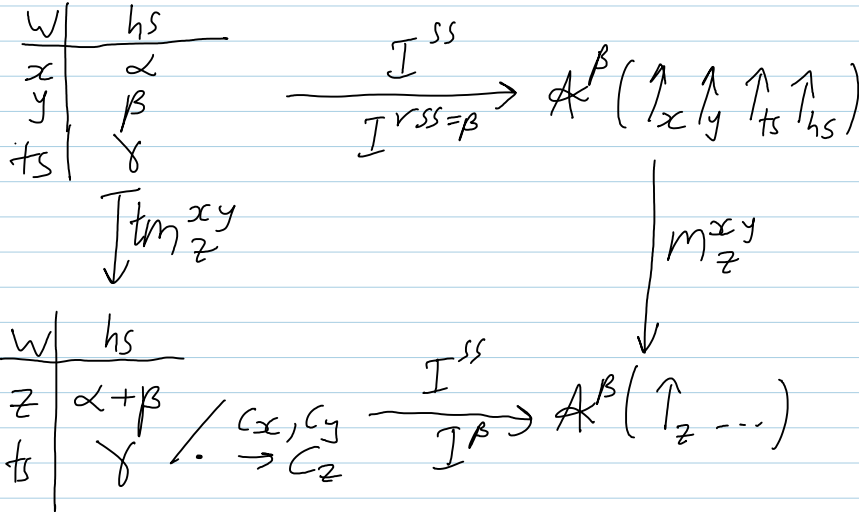 w hs
x α
y β
ts γ
I^{ss}
I^{rss=β}
𝔸^β (↑_x ↑_y ↑_{ts} ↑_{hs})
tm^{xy}_z
m^{xy}_z
w hs
z α+β
ts γ
/. c_x, c_y → c_z
I^{ss}
I^β
𝔸^β (↑_z ...)